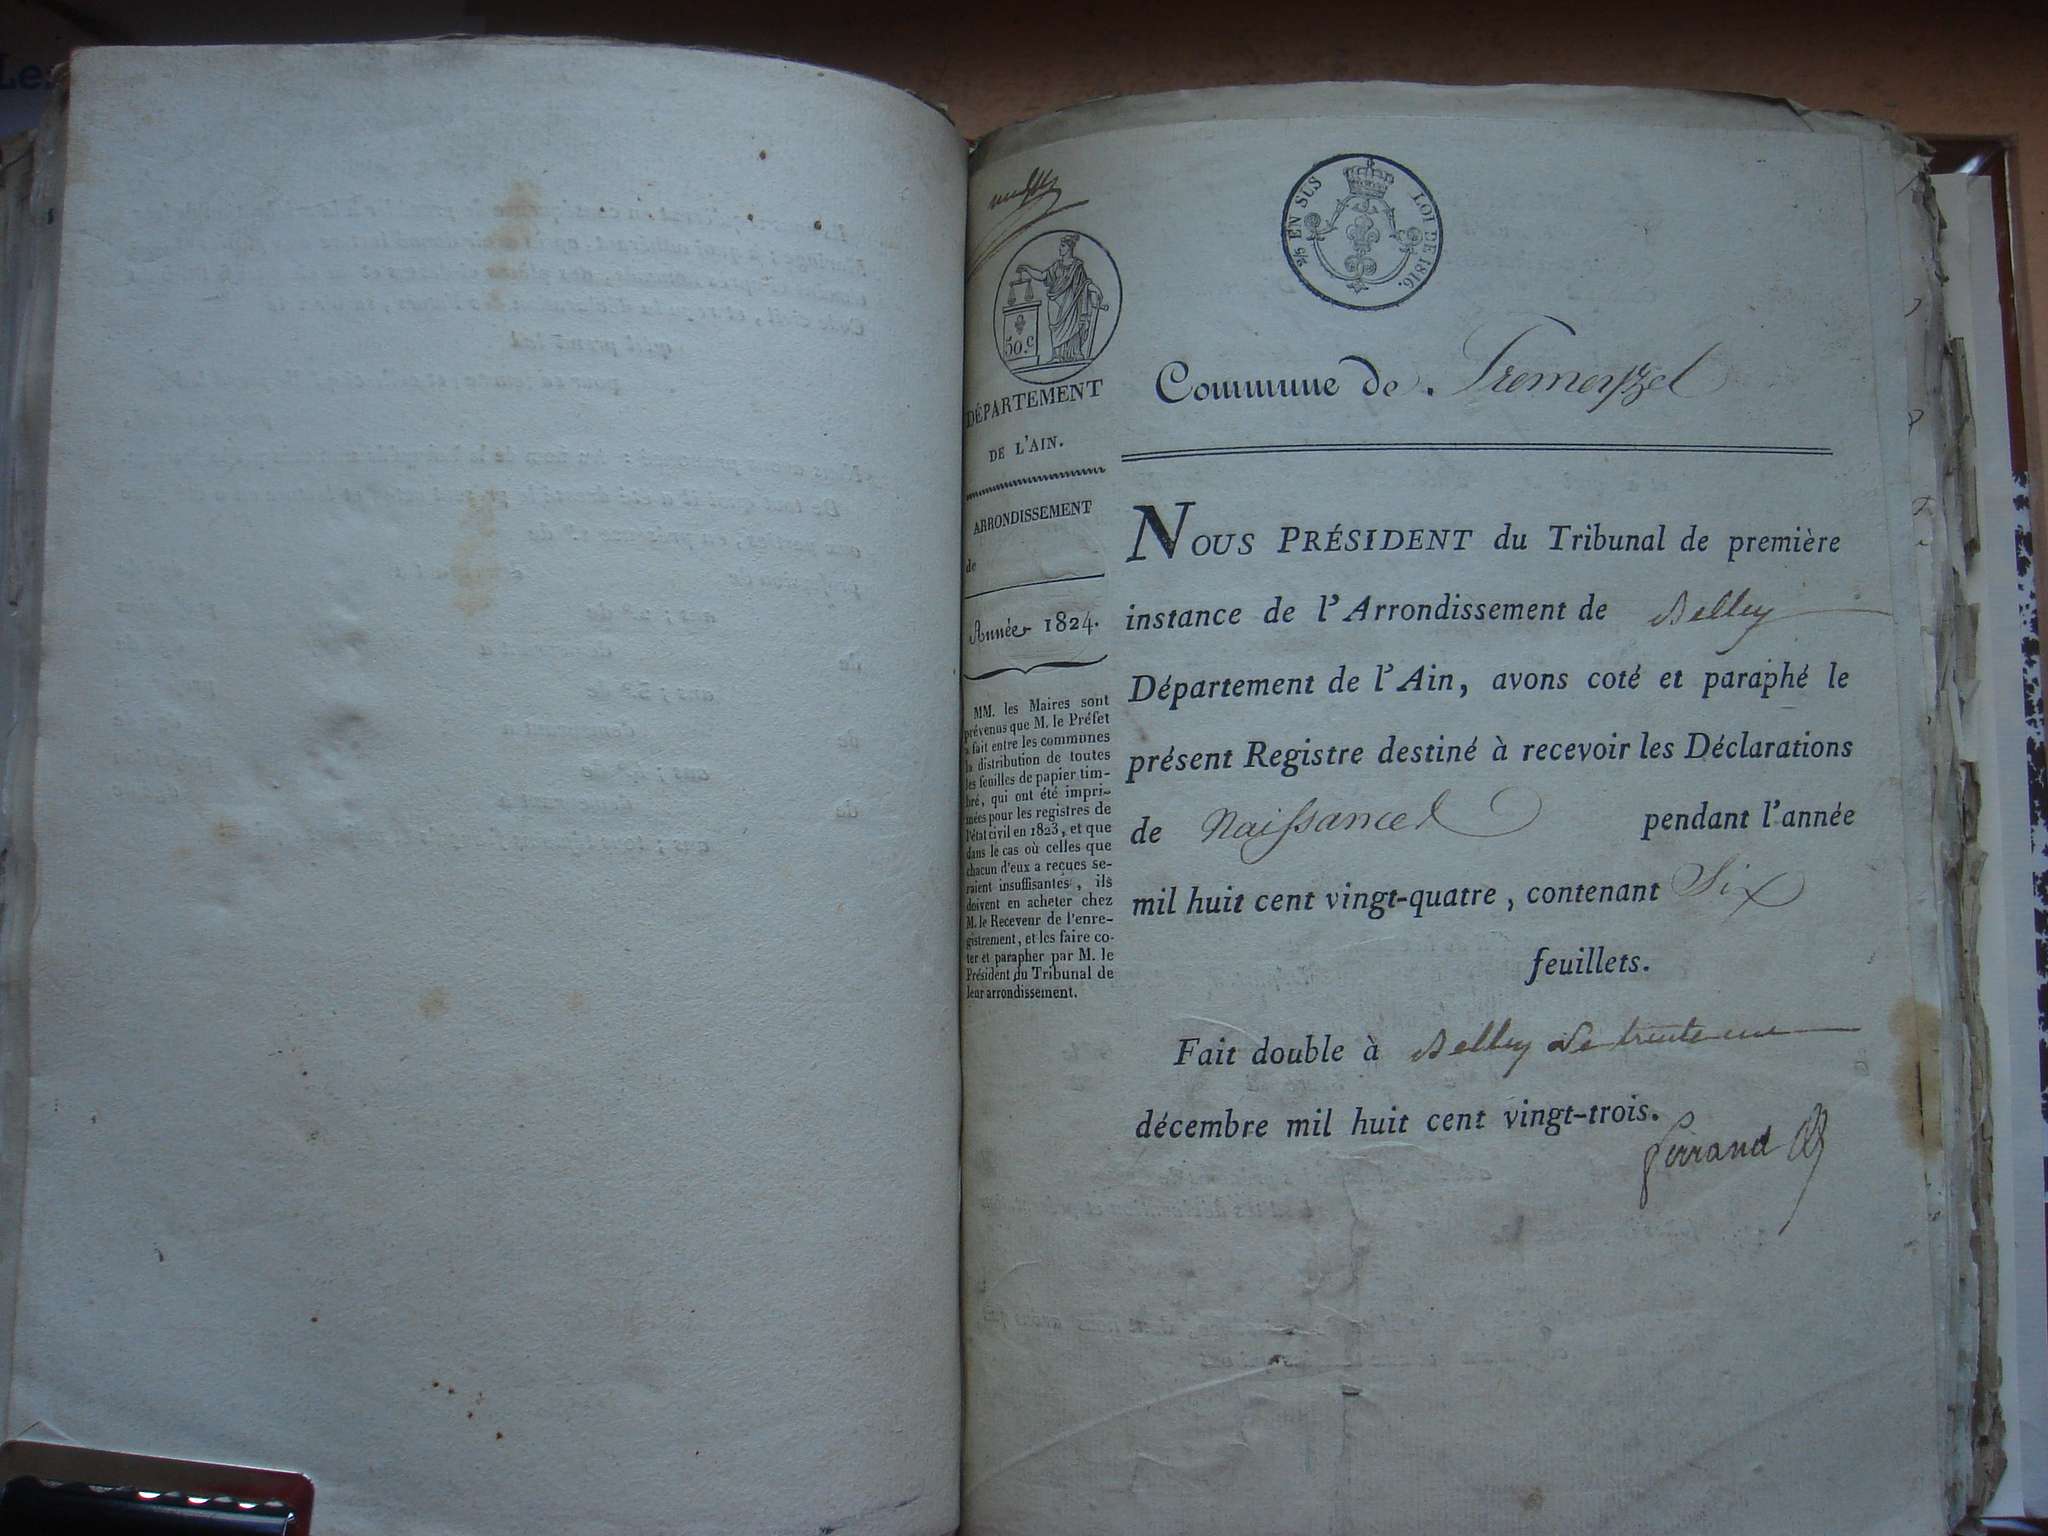 Le
2/5 EN SUS LOI DE 1816.
50.c
DÉPARTEMENT
DE L'AIN.
ARRONDISSEMENT
de
Année 1824.
MM. les Maires sont
prévenus que M. le Préfet
a fait entre les communes
la distribution de toutes
les feuilles de papier tim-
bré, qui ont été impri-
mées pour les registres de
l'état civil en 1823, et que
dans le cas où celles que
chacun d'eux a reçues se-
raient insuffisantes, ils
doivent en acheter chez
M. le Receveur de l'enre-
gistrement, et les faire co-
ter et parapher par M. le
Président du Tribunal de
leur arrondissement.
Commune de Tremeyzel
NOUS PRÉSIDENT du Tribunal de première
instance de l'Arrondissement de Belley
Département de l'Ain, avons coté et paraphé le
présent Registre destiné à recevoir les Déclarations
de Naissances pendant l'année
mil huit cent vingt-quatre, contenant Six
feuillets.
Fait double à Belley le trente un
décembre mil huit cent vingt-trois.
Perrand